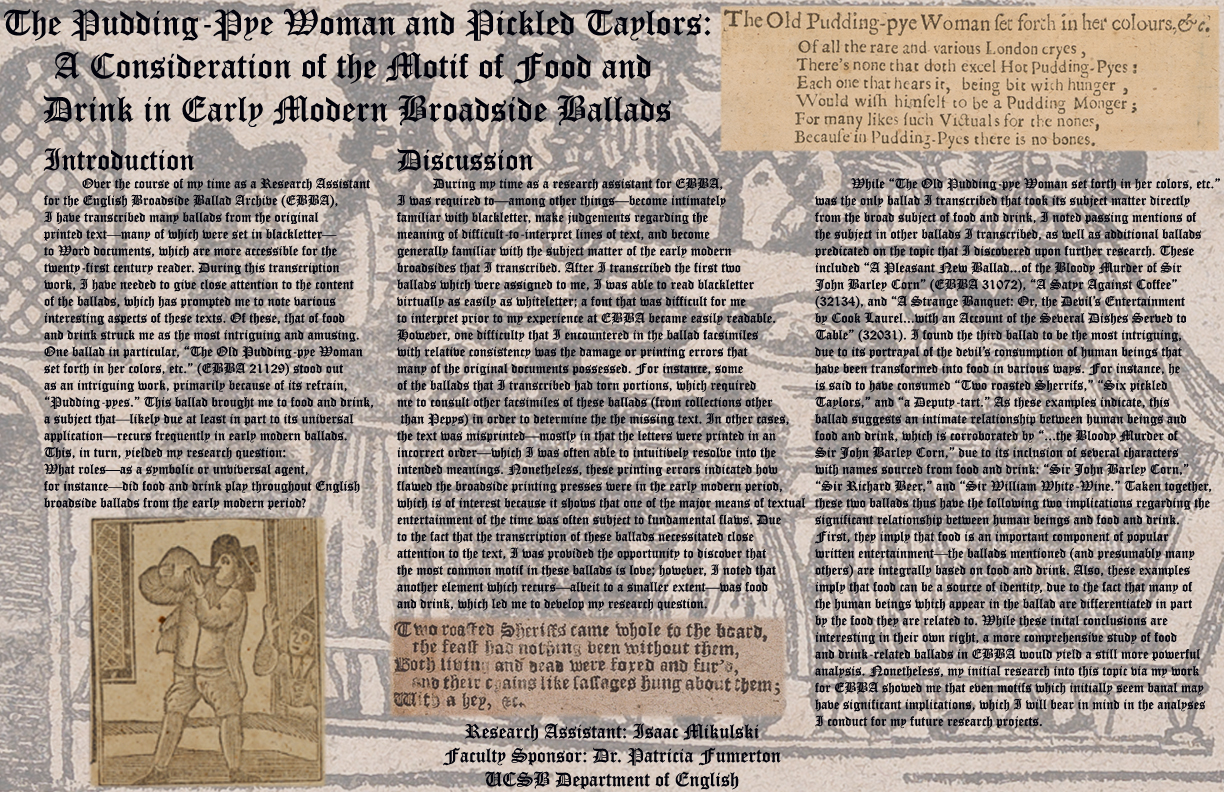 The Pudding-Pye Woman and Pickled Taylors:
A Consideration of the Motif of Food and
Drink in Early Modern Broadside Ballads
The Old Pudding-pye Woman set forth in her colours. &c.
Of all the rare and various London cryes,
There's none that doth excel Hot Pudding-Pyes:
Each one that hears it, being bit with hunger,
Would wish himself to be a Pudding Monger;
For many likes such Victuals for the nones,
Because in Pudding-Pyes there is no bones.
Introduction
Over the course of my time as a Research Assistant
for the English Broadside Ballad Archive (EBBA),
I have transcribed many ballads from the original
printed text—many of which were set in blackletter—
to Word documents, which are more accessible for the
twenty-first century reader. During this transcription
work, I have needed to give close attention to the content
of the ballads, which has prompted me to note various
interesting aspects of these texts. Of these, that of food
and drink struck me as the most intriguing and amusing.
One ballad in particular, “The Old Pudding-pye Woman
set forth in her colors, etc.” (EBBA 21129) stood out
as an intriguing work, primarily because of its refrain,
“Pudding-pyes.” This ballad brought me to food and drink,
a subject that—likely due at least in part to its universal
application—recurs frequently in early modern ballads.
This, in turn, yielded my research question:
What roles—as a symbolic or universal agent,
for instance—did food and drink play throughout English
broadside ballads from the early modern period?
Discussion
During my time as a research assistant for EBBA,
I was required to—among other things—become intimately
familiar with blackletter, make judgements regarding the
meaning of difficult-to-interpret lines of text, and become
generally familiar with the subject matter of the early modern
broadsides that I transcribed. After I transcribed the first two
ballads which were assigned to me, I was able to read blackletter
virtually as easily as whiteletter; a font that was difficult for me
to interpret prior to my experience at EBBA became easily readable.
However, one difficulty that I encountered in the ballad facsimiles
with relative consistency was the damage or printing errors that
many of the original documents possessed. For instance, some
of the ballads that I transcribed had torn portions, which required
me to consult other facsimiles of these ballads (from collections other
than Pepys) in order to determine the the missing text. In other cases,
the text was misprinted—mostly in that the letters were printed in an
incorrect order—which I was often able to intuitively resolve into the
intended meanings. Nonetheless, these printing errors indicated how
flawed the broadside printing presses were in the early modern period,
which is of interest because it shows that one of the major means of textual
entertainment of the time was often subject to fundamental flaws. Due
to the fact that the transcription of these ballads necessitated close
attention to the text, I was provided the opportunity to discover that
the most common motif in these ballads is love; however, I noted that
another element which recurs—albeit to a smaller extent—was food
and drink, which led me to develop my research question.
Two roasted Sheriffs came whole to the board,
the feast had nothing been without them,
Both living and dead were foxed and fur'd,
and their chains like sassages hung about them;
With a hey, &c.
While “The Old Pudding-pye Woman set forth in her colors, etc.”
was the only ballad I transcribed that took its subject matter directly
from the broad subject of food and drink, I noted passing mentions of
the subject in other ballads I transcribed, as well as additional ballads
predicated on the topic that I discovered upon further research. These
included “A Pleasant New Ballad...of the Bloody Murder of Sir
John Barley Corn” (EBBA 31072), “A Satyr Against Coffee”
(32134), and “A Strange Banquet: Or, the Devil's Entertainment
by Cook Laurel...with an Account of the Several Dishes Served to
Table” (32031). I found the third ballad to be the most intriguing,
due to its portrayal of the devil's consumption of human beings that
have been transformed into food in various ways. For instance, he
is said to have consumed “Two roasted Sherrifs,” “Six pickled
Taylors,” and “a Deputy-tart.” As these examples indicate, this
ballad suggests an intimate relationship between human beings and
food and drink, which is corroborated by “...the Bloody Murder of
Sir John Barley Corn,” due to its inclusion of several characters
with names sourced from food and drink: “Sir John Barley Corn,”
“Sir Richard Beer,” and “Sir William White-Wine.” Taken together,
these two ballads thus have the following two implications regarding the
significant relationship between human beings and food and drink.
First, they imply that food is an important component of popular
written entertainment—the ballads mentioned (and presumably many
others) are integrally based on food and drink. Also, these examples
imply that food can be a source of identity, due to the fact that many of
the human beings which appear in the ballad are differentiated in part
by the food they are related to. While these inital conclusions are
interesting in their own right, a more comprehensive study of food
and drink-related ballads in EBBA would yield a still more powerful
analysis. Nonetheless, my initial research into this topic via my work
for EBBA showed me that even motifs which initially seem banal may
have significant implications, which I will bear in mind in the analyses
I conduct for my future research projects.
Research Assistant: Isaac Mikulski
Faculty Sponsor: Dr. Patricia Fumerton
UCSB Department of English